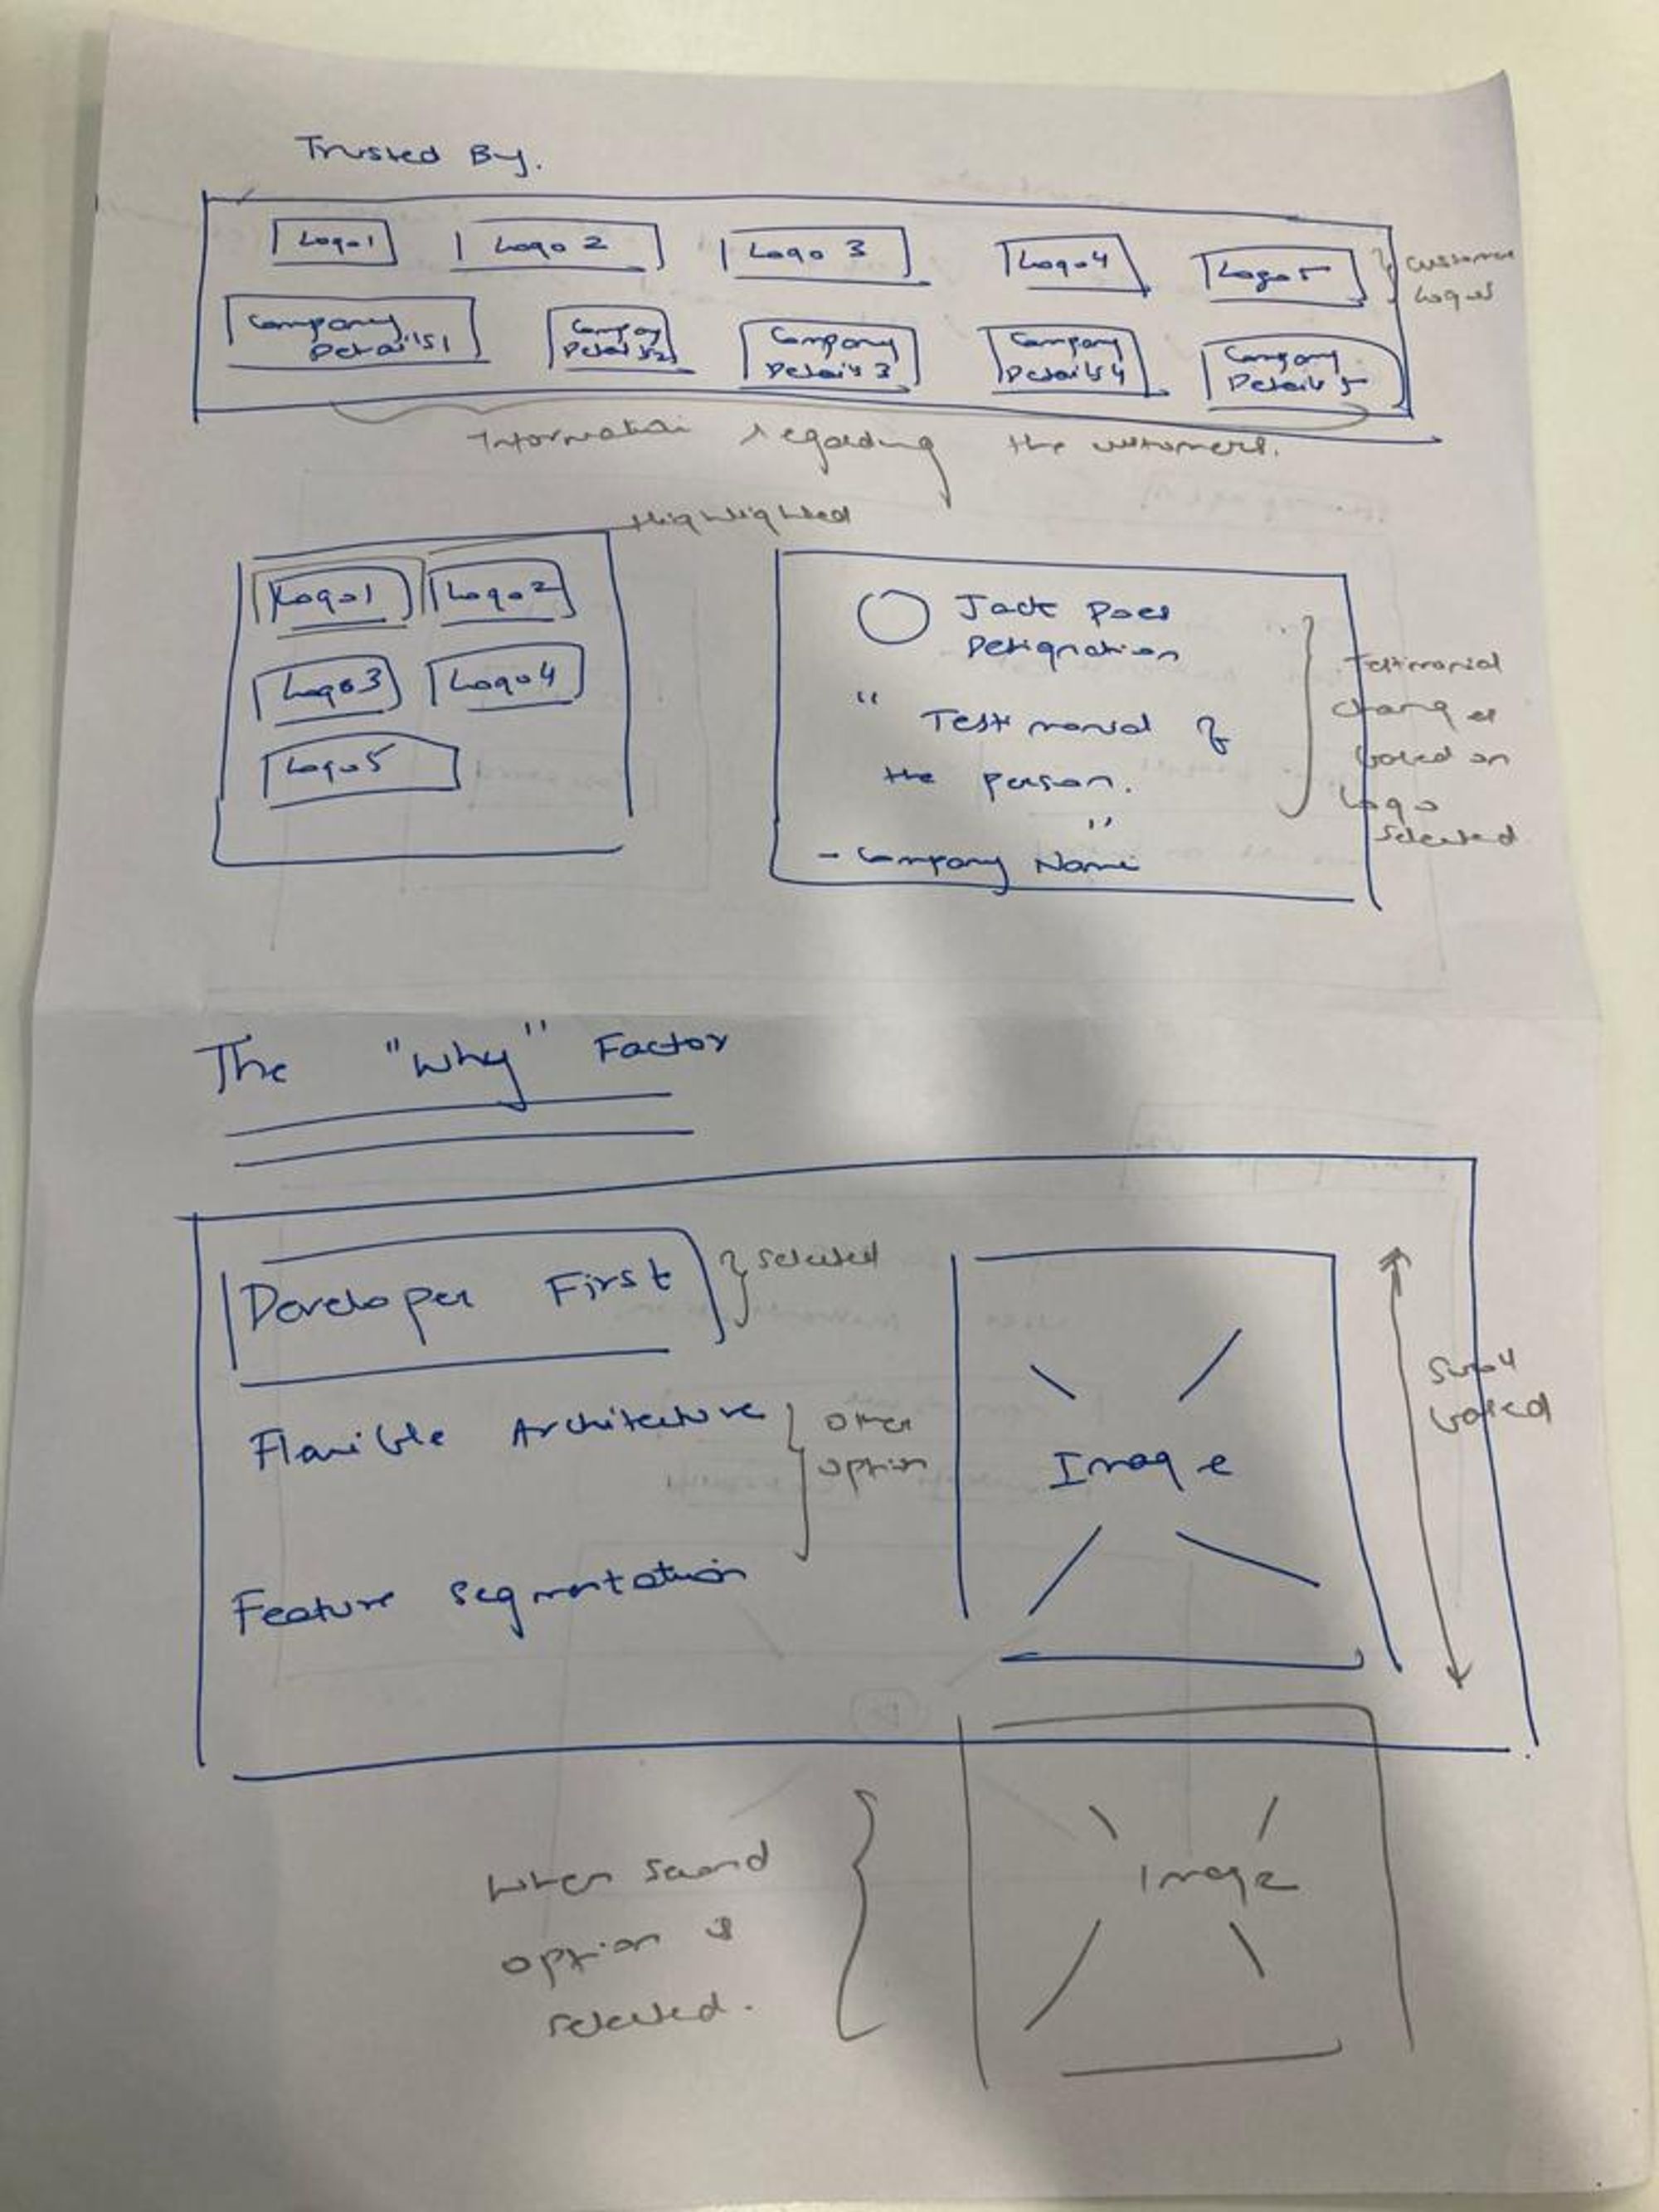 Trusted By.
Logo1
Logo 2
Logo 3
Logo4
Logo5
customer
Logos
Company
Details1
Company
Details2
Company
Details 3
Company
Details4
Company
Details 5
Information regarding the customers.
Highlighted
Logo1
Logo2
Logo3
Logo4
Logo5
Jack Does
Designation
" Testimonial of
the person.
"
- Company Name
Testimonial
changes
based on
Logo
selected
The "Why" Factor
Developer First
selected
Flexible Architecture
other
option
Feature segmentation
Image
Scroll
based
Image
When second
option is
selected.